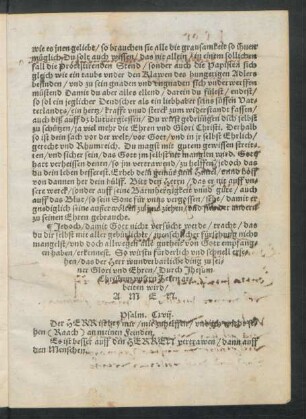 wie es jnen geliebt / so brauchen sie alle die grausamkeit so jhnen
müglich. Du solt auch wissen / das nit allein / in einem sollichen
fall die Protestirenden Stend / sonder auch die Papisten sich
gleich wie ein taube vnder den Klawen des hungerigen Adlers
befinden / vnd zu sein gnaden vnd vngnaden sich vnderwerffen
müssen. Damit du aber alles einest / darein du fülest / endest /
so sol ein jeglicher Deudscher als ein liebhaber seins süssen Vat=
terlandes / ein hertz / krafft vnnd sterck zum widerstand fassen /
auch biß auffs blutuergiessen / Du wirst gedrungen dich selbst
zu schützen / ja viel mehr die Ehren vnd Glori Christi. Derhalb
so ist dein sach vor der welt / vor Got / vnd in jr selbst Ehrlich /
gerecht vnd Rhumreich. Du magst mit gutem gewissen strei=
ten / vnd sicher sein / das Gott jm selbst nit manglen wird. Gott
hart verheissen denen / so jm vertrawen / zu helffen / jedoch das
du dein leben besserst. Erhebe gen Himel / vnd hoff
von dannen her dein hülff. Bitt den Herrn / das er nit auff vn=
sere werck / sonder auff seine Barmhertzigkeit vnnd güte / auch
auff das Blut / so sein Sone für vngs vergossen / sehe / damit er
gnediglich seine außerwölten
zu seinen Ehren gebrauche.
Jedoch / damit Gott nicht versucht werde / trachte / das
du dir selbst mit aller gebürlicher / menschlicher fürsehung nichts
mangelst / vnd doch allwegen alle gutheit von Gott empfang=
en haben / erkennest. So wirstu fürderlich vnd schnell erse=
hen / das der Herr wunderbarliche ding zu sei=
ner Glori vnd Ehren / Durch Jhesum
Christum vnsern Herrn
beiten wird /
A M E N.
Psalm. Cxvij.
Der HERR ist bey mir / mir zu helffen / vnd ich wil se=
hen (Raach) an meinen Feinden.
Es ist besser auff den HERREN vertrawen / dann auff
den Menschen.